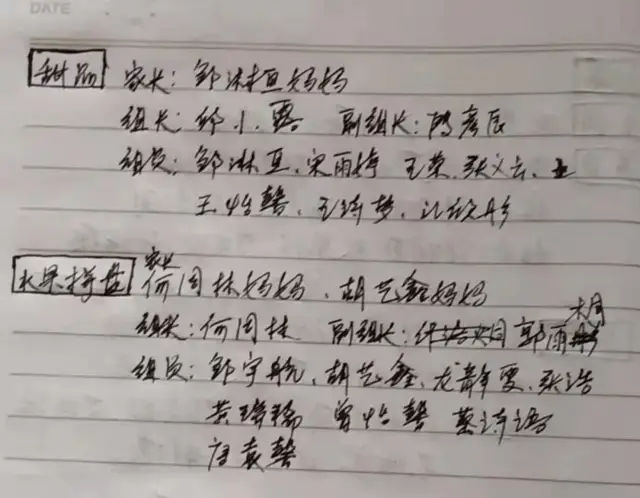 DATE
甜品 家长：邹淋亘妈妈
组长：邹小露 副组长：陈彦辰
组员：邹淋亘、宋雨婷 王荣、张义云、
王怡馨、王诗梦、江欣彤
家长
水果拼盘 何周林妈妈、胡艺鑫妈妈
组长：何周林 副组长：郭雨桐
组员：邹宇航、胡艺鑫、龙静雯、张浩
黄瑞稀 曾怡馨 蔡诗语
唐袁馨